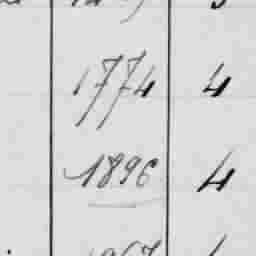 1774 4
1896 4